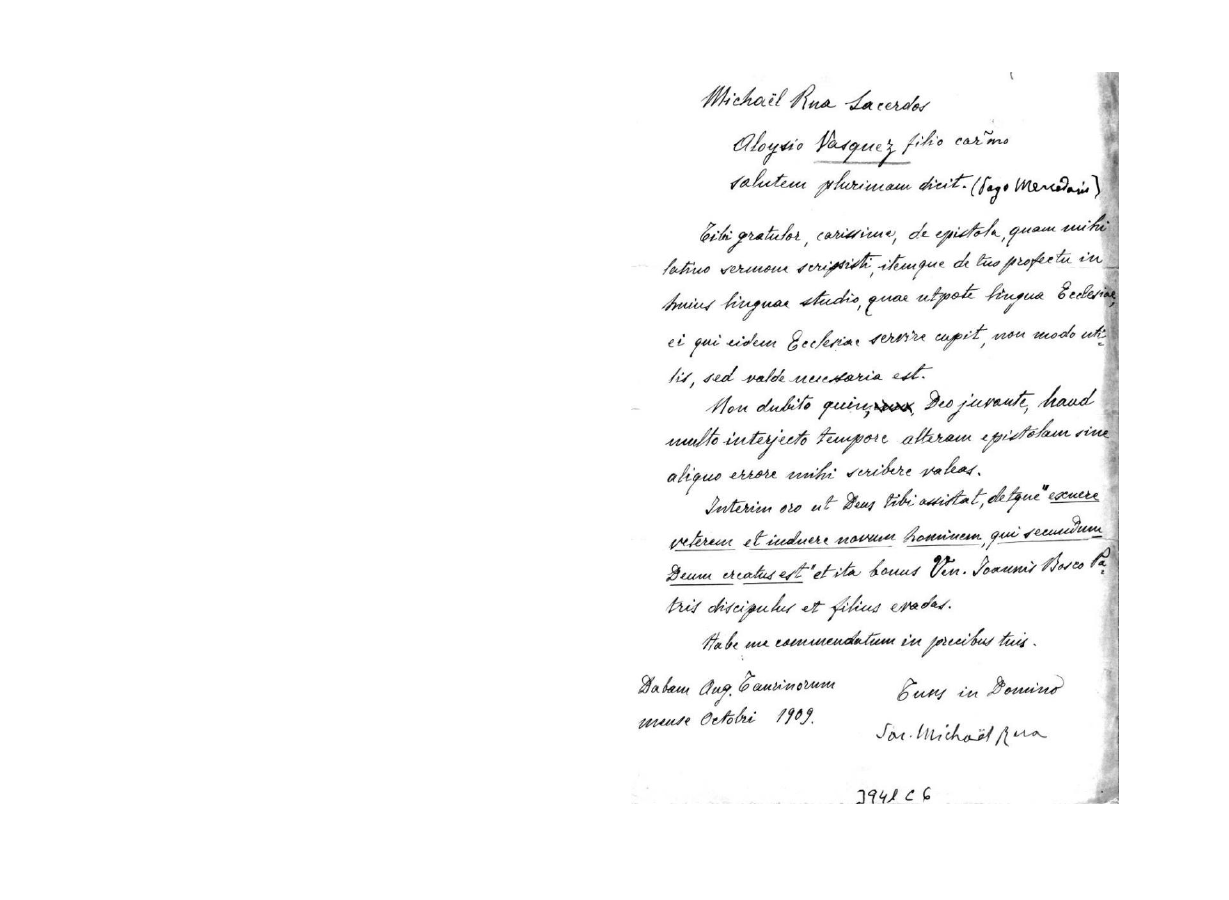 Michaël Rua Sacerdos
Aloysio Vasquez filio car~mo
salutem plurimam dicit. (Pago Mercedario)
Tibi gratulor, carissime, de epistola, quam mihi
latino sermone scripsisti, itemque de tuo profectu in
huius linguae studio, quae utpote lingua Ecclesiae,
ei qui eidem Ecclesiae servire cupit, non modo uti-
lis, sed valde necessaria est.
Non dubito quin, Deo juvante, haud
multo interjecto tempore alteram epistolam sine
aliquo errore mihi scribere valeas.
Interim oro ut Deus tibi assistat, detque "exuere
veterem et induere novum hominem, qui secundum
Deum creatus est" et ita bonus Ven. Joannis Bosco Pa-
tris discipulus et filius evadas.
Habe me commendatum in precibus tuis.
Dabam Aug. Taurinorum
mense Octobri 1909.
Tuus in Domino
Sac. Michaël Rua
3941 C 6